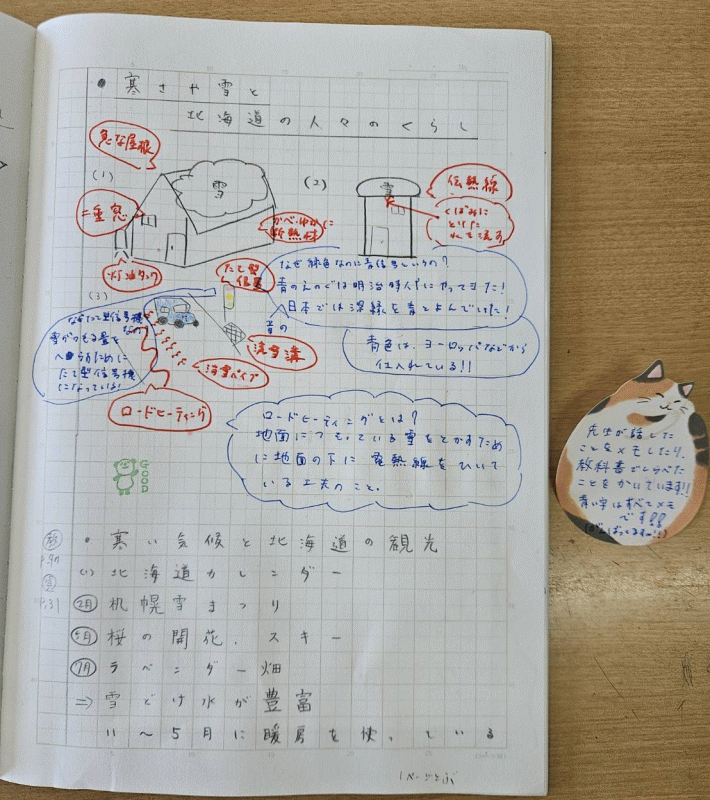 ● 寒さや雪と
北海道の人々のくらし
急な屋根
(1)
雪
二重窓
かべ・ゆかに
断熱材
灯油タンク
(2)
雪
伝熱線
くぼみに
とけた
水を流す
(3)
たて型
信号
なぜたて型信号機
なの?
雪がつもる量を
へらすために
たて型信号機
になっている!
流雪溝
消雪パイプ
ロードヒーティング
なぜ緑色なのに青信号というの?
青のえのぐは明治時代にやってきた!
日本では深緑を青とよんでいた!
青の
青色は、ヨーロッパなどから
仕入れている!!
ロードヒーティングとは?
地面につもっている雪をとかすため
に地面の下に電熱線をひいて
いる工夫のこと.
GOOD
● 寒い気候と北海道の観光
(1) 北海道カレンダー
2月 札幌雪まつり
5月 桜の開花.スキー
7月 ラベンダー畑
⇒ 雪どけ水が豊富
11〜5月に暖房を使っている
P.31
1ページとぶ
先生が話した
ことをメモしたり、
教科書でしらべた
ことをかいています!!
青い字はすべてメモ
です!!